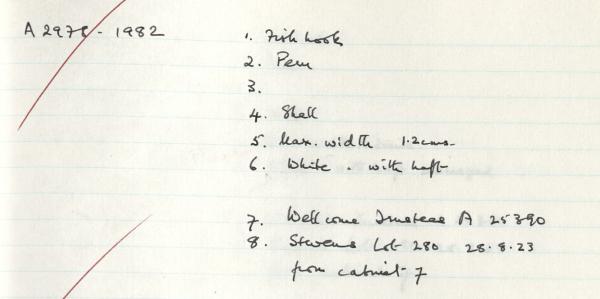 A 2978 - 1982
1. Fish hook
2. Peru
3.
4. Shell
5. Max. width 1.2cms.
6. White. with haft
7. Wellcome Trustees A 25390
8. Stevens Lot 280 28.8.23
from cabinet 7